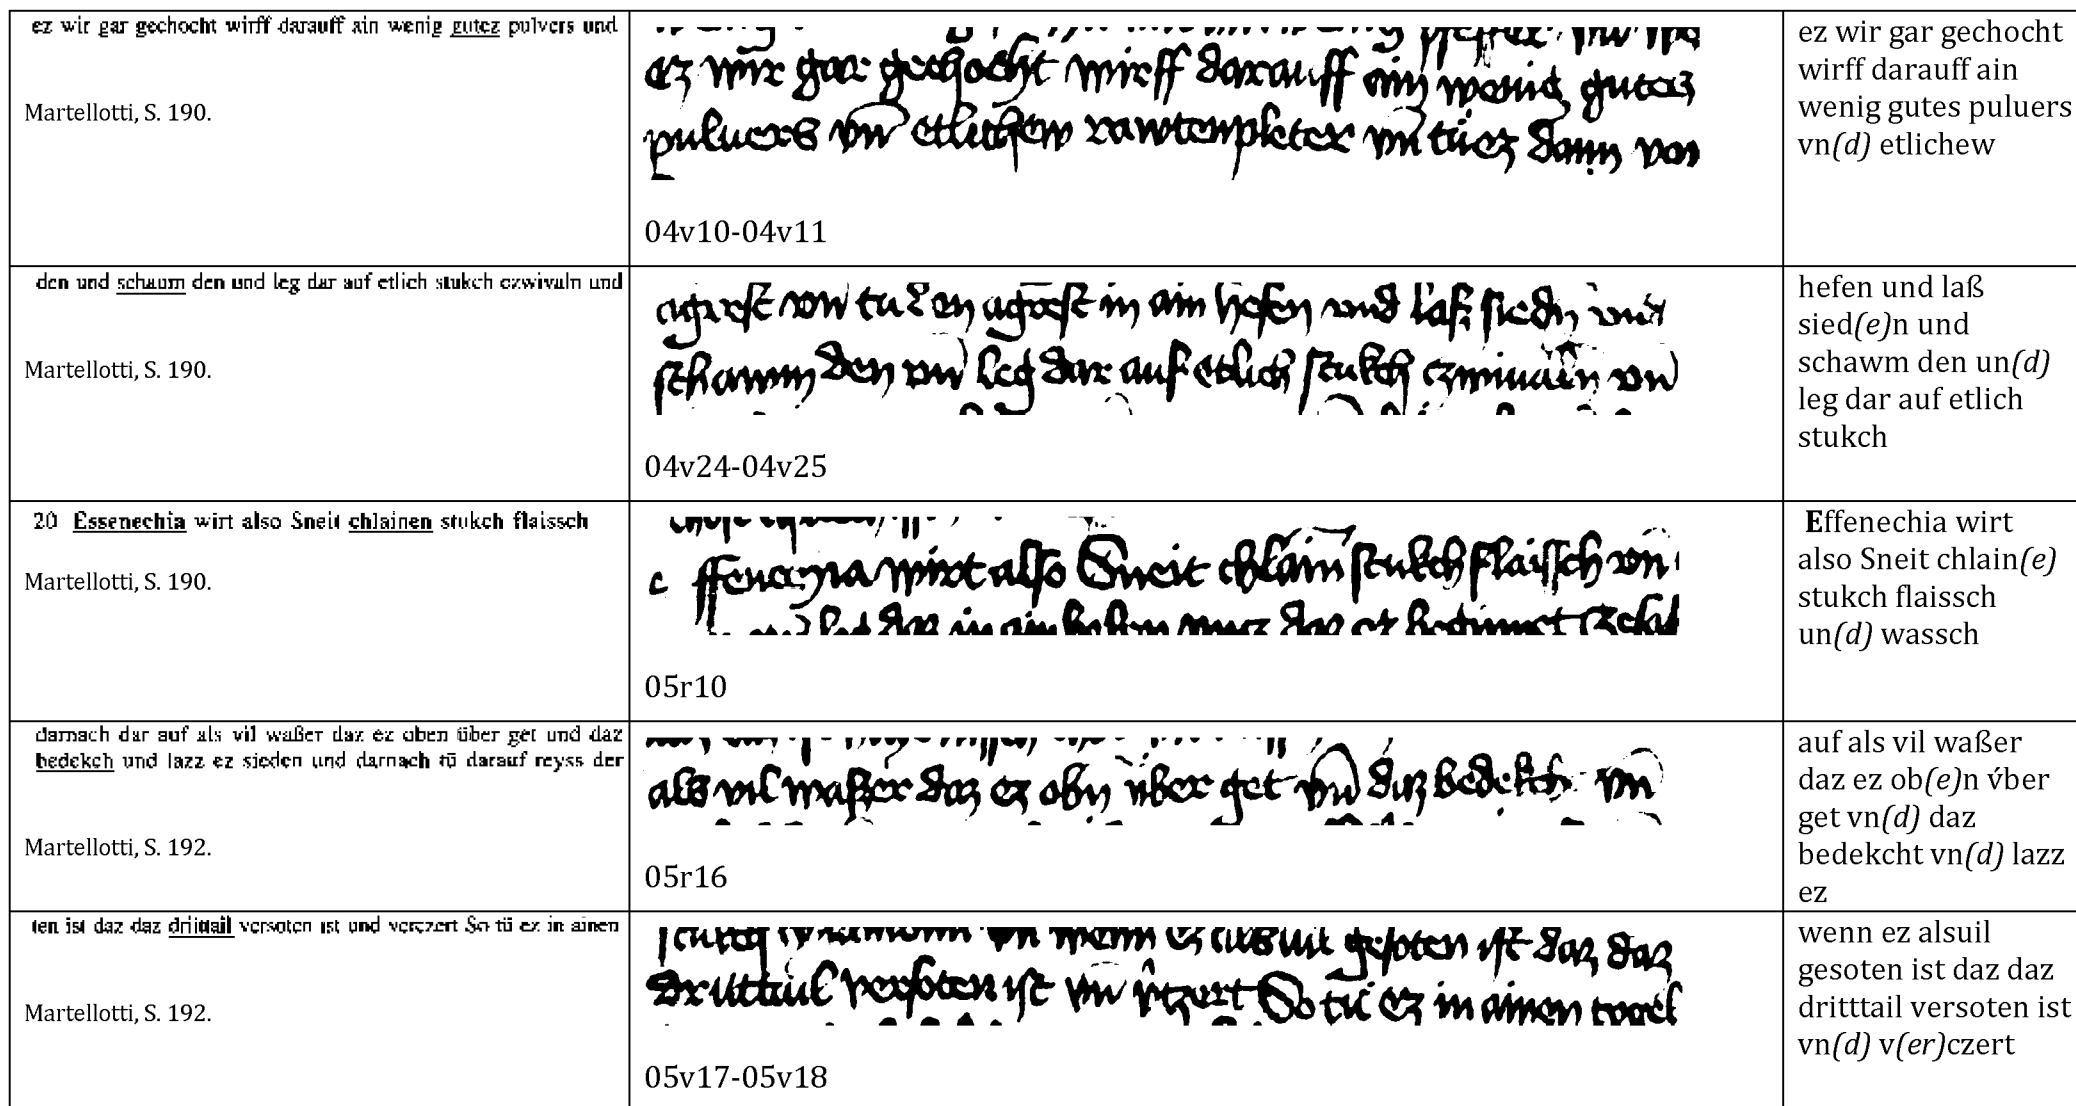 ez wir gar gechocht wirff darauff ain wenig gutez pulvers und
Martellotti, S. 190.
ez wir gar gechocht wirff darauff ain wenig gutes
puluers vn etlichew rawtenpleter vn tuez dann von
04v10-04v11
ez wir gar gechocht
wirff darauff ain
wenig gutes puluers
vn(d) etlichew
den und schaum den und leg dar auf etlich stukch czwivaln und
Martellotti, S. 190.
agrest vn tu den agrest in ain hefen und laß siedn und
schawm den vn leg dar auf etlich stukch czwiualn vn
04v24-04v25
hefen und laß
sied(e)n und
schawm den un(d)
leg dar auf etlich
stukch
20 Essenechia wirt also Sneit chlainen stukch flaissch
Martellotti, S. 190.
e ffenechia wirt also Sneit chlain stukch flaissch vn
05r10
Effenechia wirt
also Sneit chlain(e)
stukch flaissch
un(d) wassch
darnach dar auf als vil waßer daz ez oben über get und daz
bedekch und lazz ez sieden und darnach tü darauf reyss der
Martellotti, S. 192.
als vil waßer daz ez obn v́ber get vn daz bedekch vn
05r16
auf als vil waßer
daz ez ob(e)n v́ber
get vn(d) daz
bedekcht vn(d) lazz
ez
ten ist daz daz driittail versoten ist und verczert So tü ez in ainen
Martellotti, S. 192.
vn wenn ez alsuil gesoten ist daz daz
dritttail versoten ist vn vczert So tu ez in ainen
05v17-05v18
wenn ez alsuil
gesoten ist daz daz
dritttail versoten ist
vn(d) v(er)czert